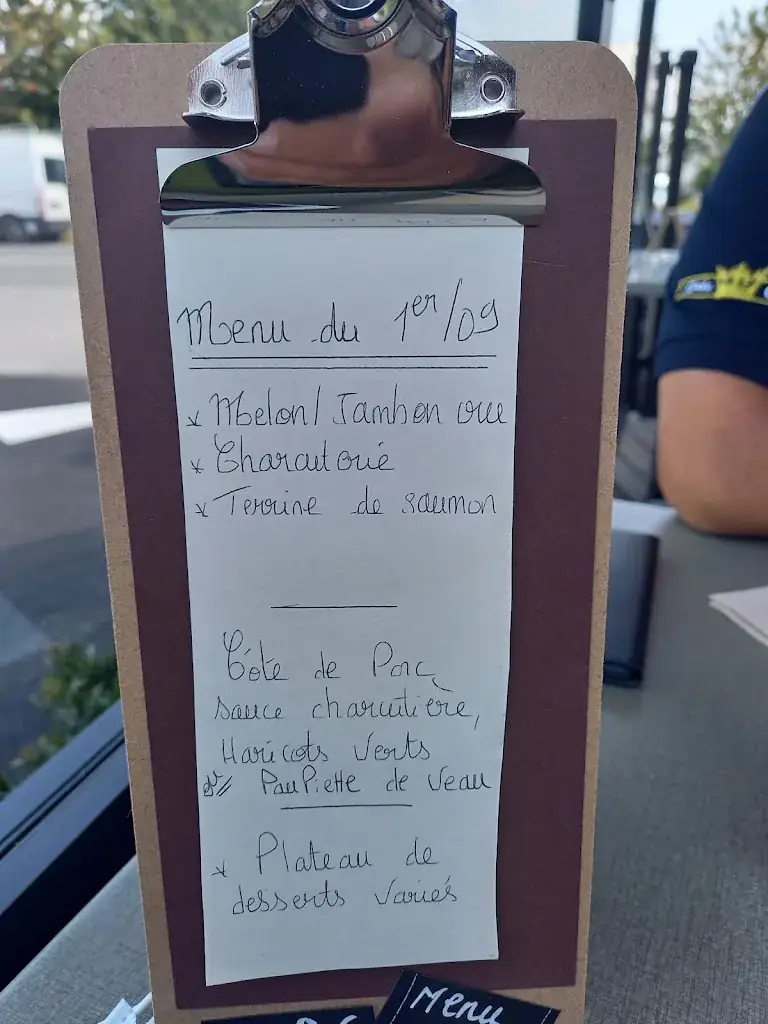 Menu du 1er/09
* Melon / Jambon cru
* Charcuterie
* Terrine de saumon
Côte de Porc,
sauce charcutière,
Haricots Verts
ou // PauPiette de Veau
* Plateau de
desserts variés
Menu